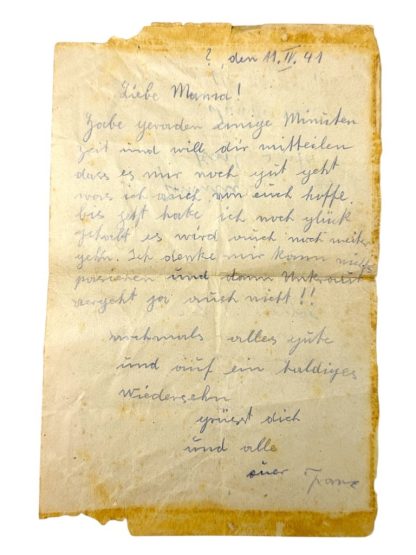 ?, den 11.IV.41
Liebe Mama!
Habe geraden einige Minuten
Zeit und will dir mitteilen
dass es mir noch gut geht
was ich auch von euch hoffe.
bis jetzt habe ich noch glück
gehabt es wird auch noch weiter
gehn. Ich denke mir kann nichts
pasieren und dann Unkraut
vergeht ja auch nicht!!
nochmals alles gute
und auf ein baldiges
Wiedersehn
grüsst dich
und alle
euer Franz